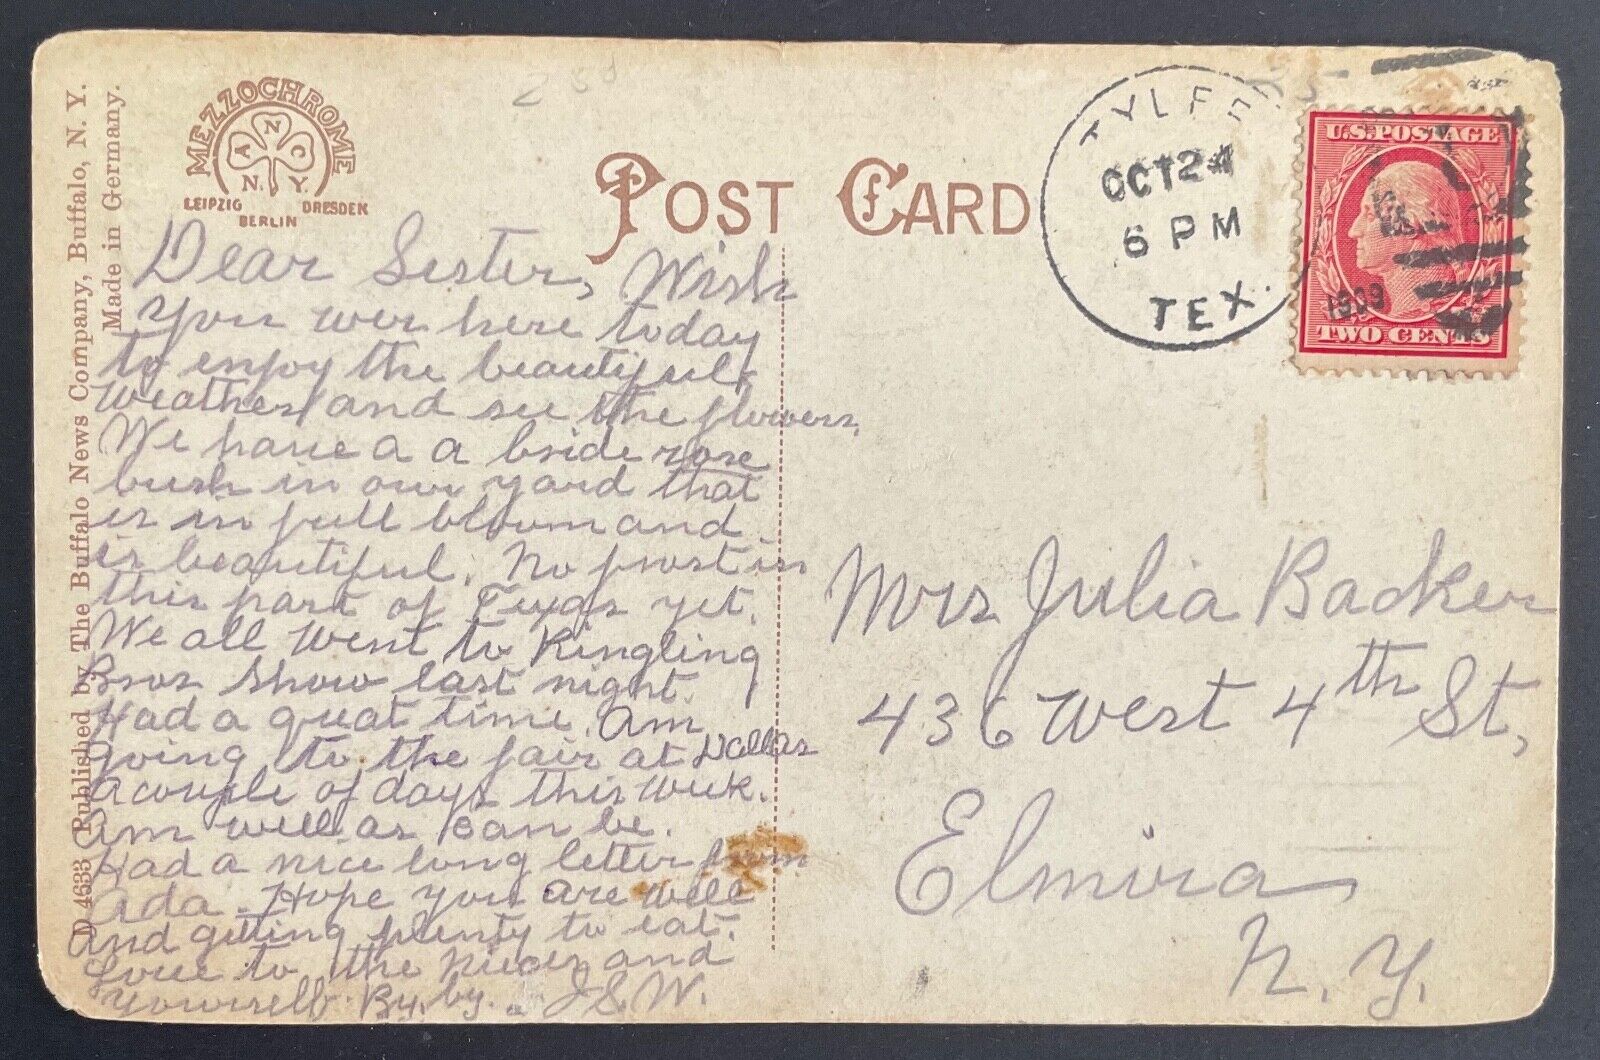 D 4633 Published by The Buffalo News Company, Buffalo, N. Y.
Made in Germany.
MEZZOCHROME
A N C
N. Y.
LEIPZIG DRESDEN
BERLIN
POST CARD
OCT 24
6 PM
TEX.
1909
U.S. POSTAGE
TWO CENTS
Dear Sister, Wish
you wer here today
to enjoy the beautiful
weather and see the flowers.
We have a a bride rose
bush in our yard that
is in full bloom and
is beautiful. No frost in
this part of Texas yet.
We all went to Ringling
Bros Show last night.
Had a great time. Am
going to the fair at Dallas
a couple of days this week.
Am well as can be.
Had a nice long letter from
Ada. Hope you are well
and getting plenty to eat.
Love to the nieces and
yourself. By. by. J.S.W.
Mrs Julia Backer
436 West 4th St,
Elmira
N. Y.